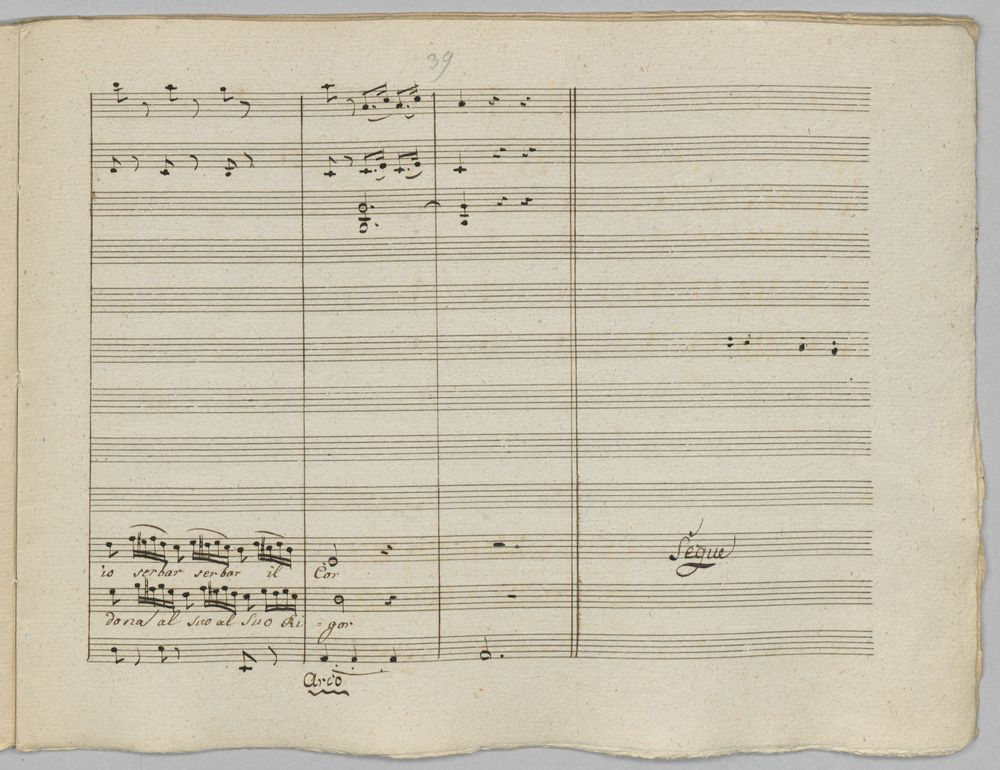 39
Segue
io serbar serbar il Cor
dona al suo al suo Ri = gor
Arco